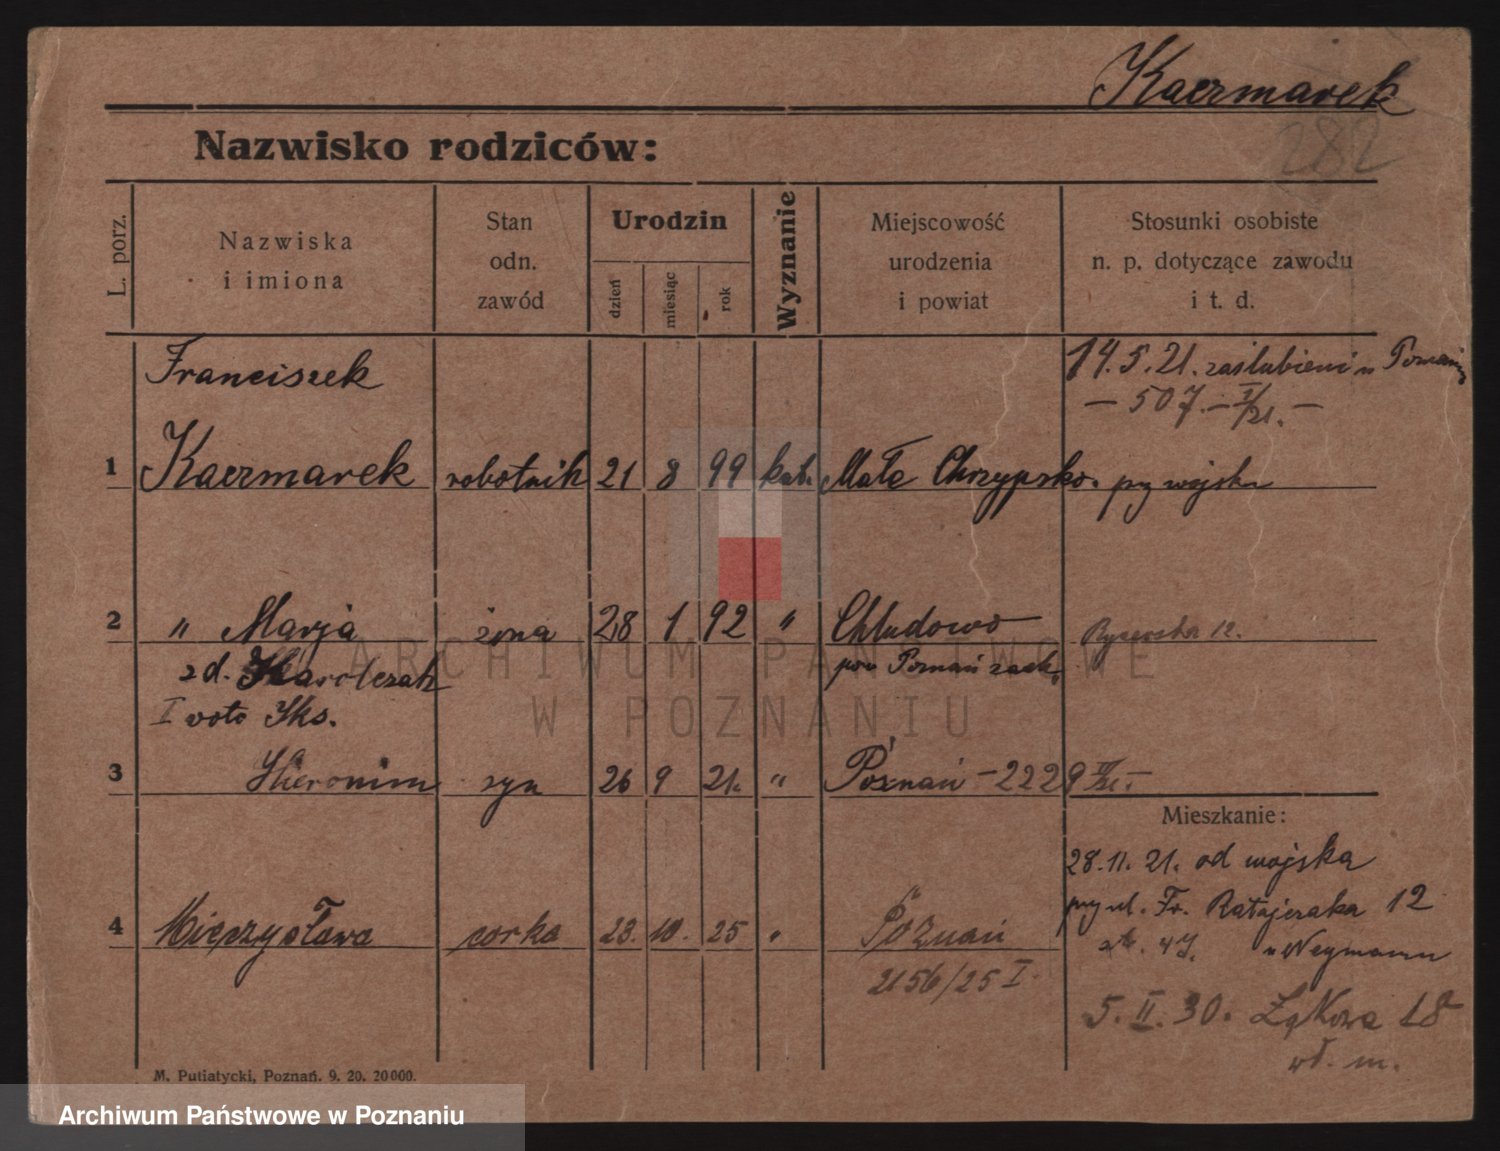 Kaczmarek
282
Nazwisko rodziców:
L. porz.
Nazwiska
i imiona
Stan
odn.
zawód
Urodzin
dzień
miesiąc
rok
Wyznanie
Miejscowość
urodzenia
i powiat
Stosunki osobiste
n. p. dotyczące zawodu
i t. d.
Franciszek
14. 5. 21. zaślubieni w Poznaniu
— 507. — I/21. —
1 Kaczmarek robotnik 21 8 99 kat. Małe Chrzypsko. przy wojsku
2 " Marja żona 28 1 92 " Chludowo
12.
z d. Karolczak pow Poznań zach.
I voto Iks.
3 Hieronim syn 26 9 21. " Poznań — 2229
Mieszkanie:
28. 11. 21. od wojska
przy ul. Fr. Ratajczaka 12
4 Mieczysława corka 23. 10. 25 " Poznań
u Neymann
2156/25 I.
5. II. 30. Łąkowa 18
wł. m.
M. Putiatycki, Poznań. 9. 20. 20000.
ARCHIWUM PAŃSTWOWE
W POZNANIU
Archiwum Państwowe w Poznaniu